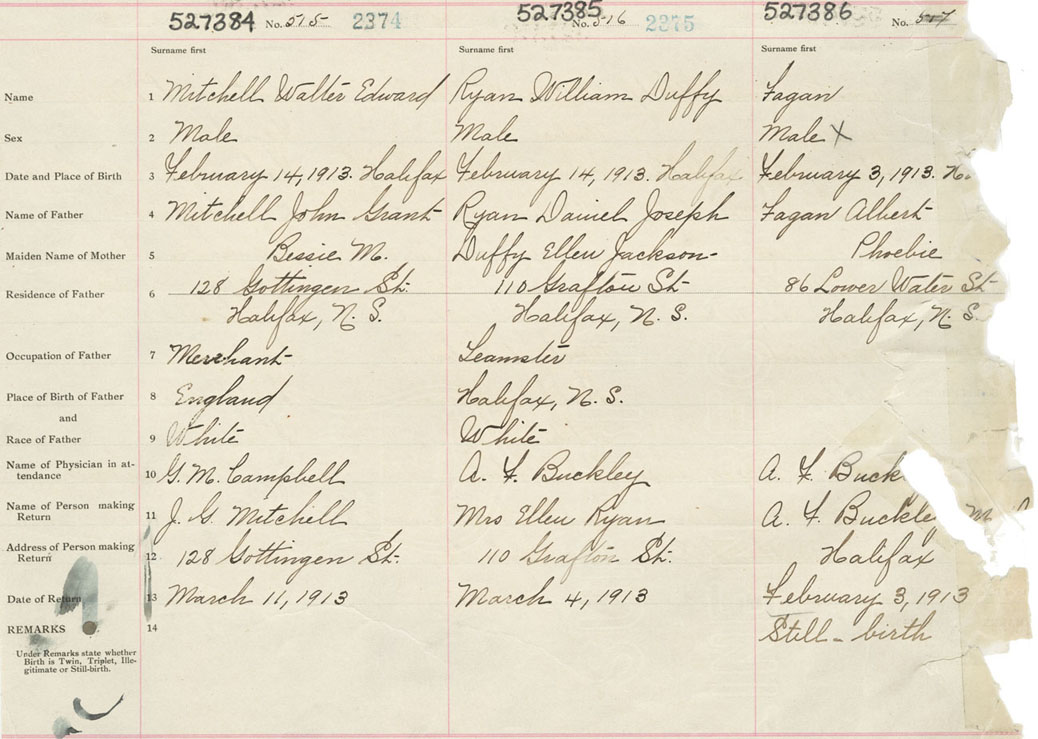 527384 No. 515 2374 527385 No. 516 2375 527386 No. 517
Surname first Surname first Surname first
Name 1 Mitchell Walter Edward Ryan William Duffy Fagan
Sex 2 Male Male Male X
Date and Place of Birth 3 February 14, 1913. Halifax February 14, 1913. Halifax February 3, 1913.
Name of Father 4 Mitchell John Grant Ryan Daniel Joseph Fagan Albert
Maiden Name of Mother 5 Bessie M. Duffy Ellen Jackson Phoebie
Residence of Father 6 128 Gottingen St. 110 Grafton St 86 Lower Water St
Halifax, N. S. Halifax, N. S. Halifax, N. S.
Occupation of Father 7 Merchant Teamster
Place of Birth of Father 8 England Halifax, N. S.
and
Race of Father 9 White White
Name of Physician in at-
tendance 10 G. M. Campbell A. F. Buckley A. F. Buck
Name of Person making
Return 11 J. G. Mitchell Mrs Ellen Ryan A. F. Buckle M
Address of Person making
Return 12 128 Gottingen St. 110 Grafton St. Halifax
Date of Return 13 March 11, 1913 March 4, 1913 February 3, 1913
REMARKS 14 Still-birth
Under Remarks state whether
Birth is Twin, Triplet, Ille-
gitimate or Still-birth.